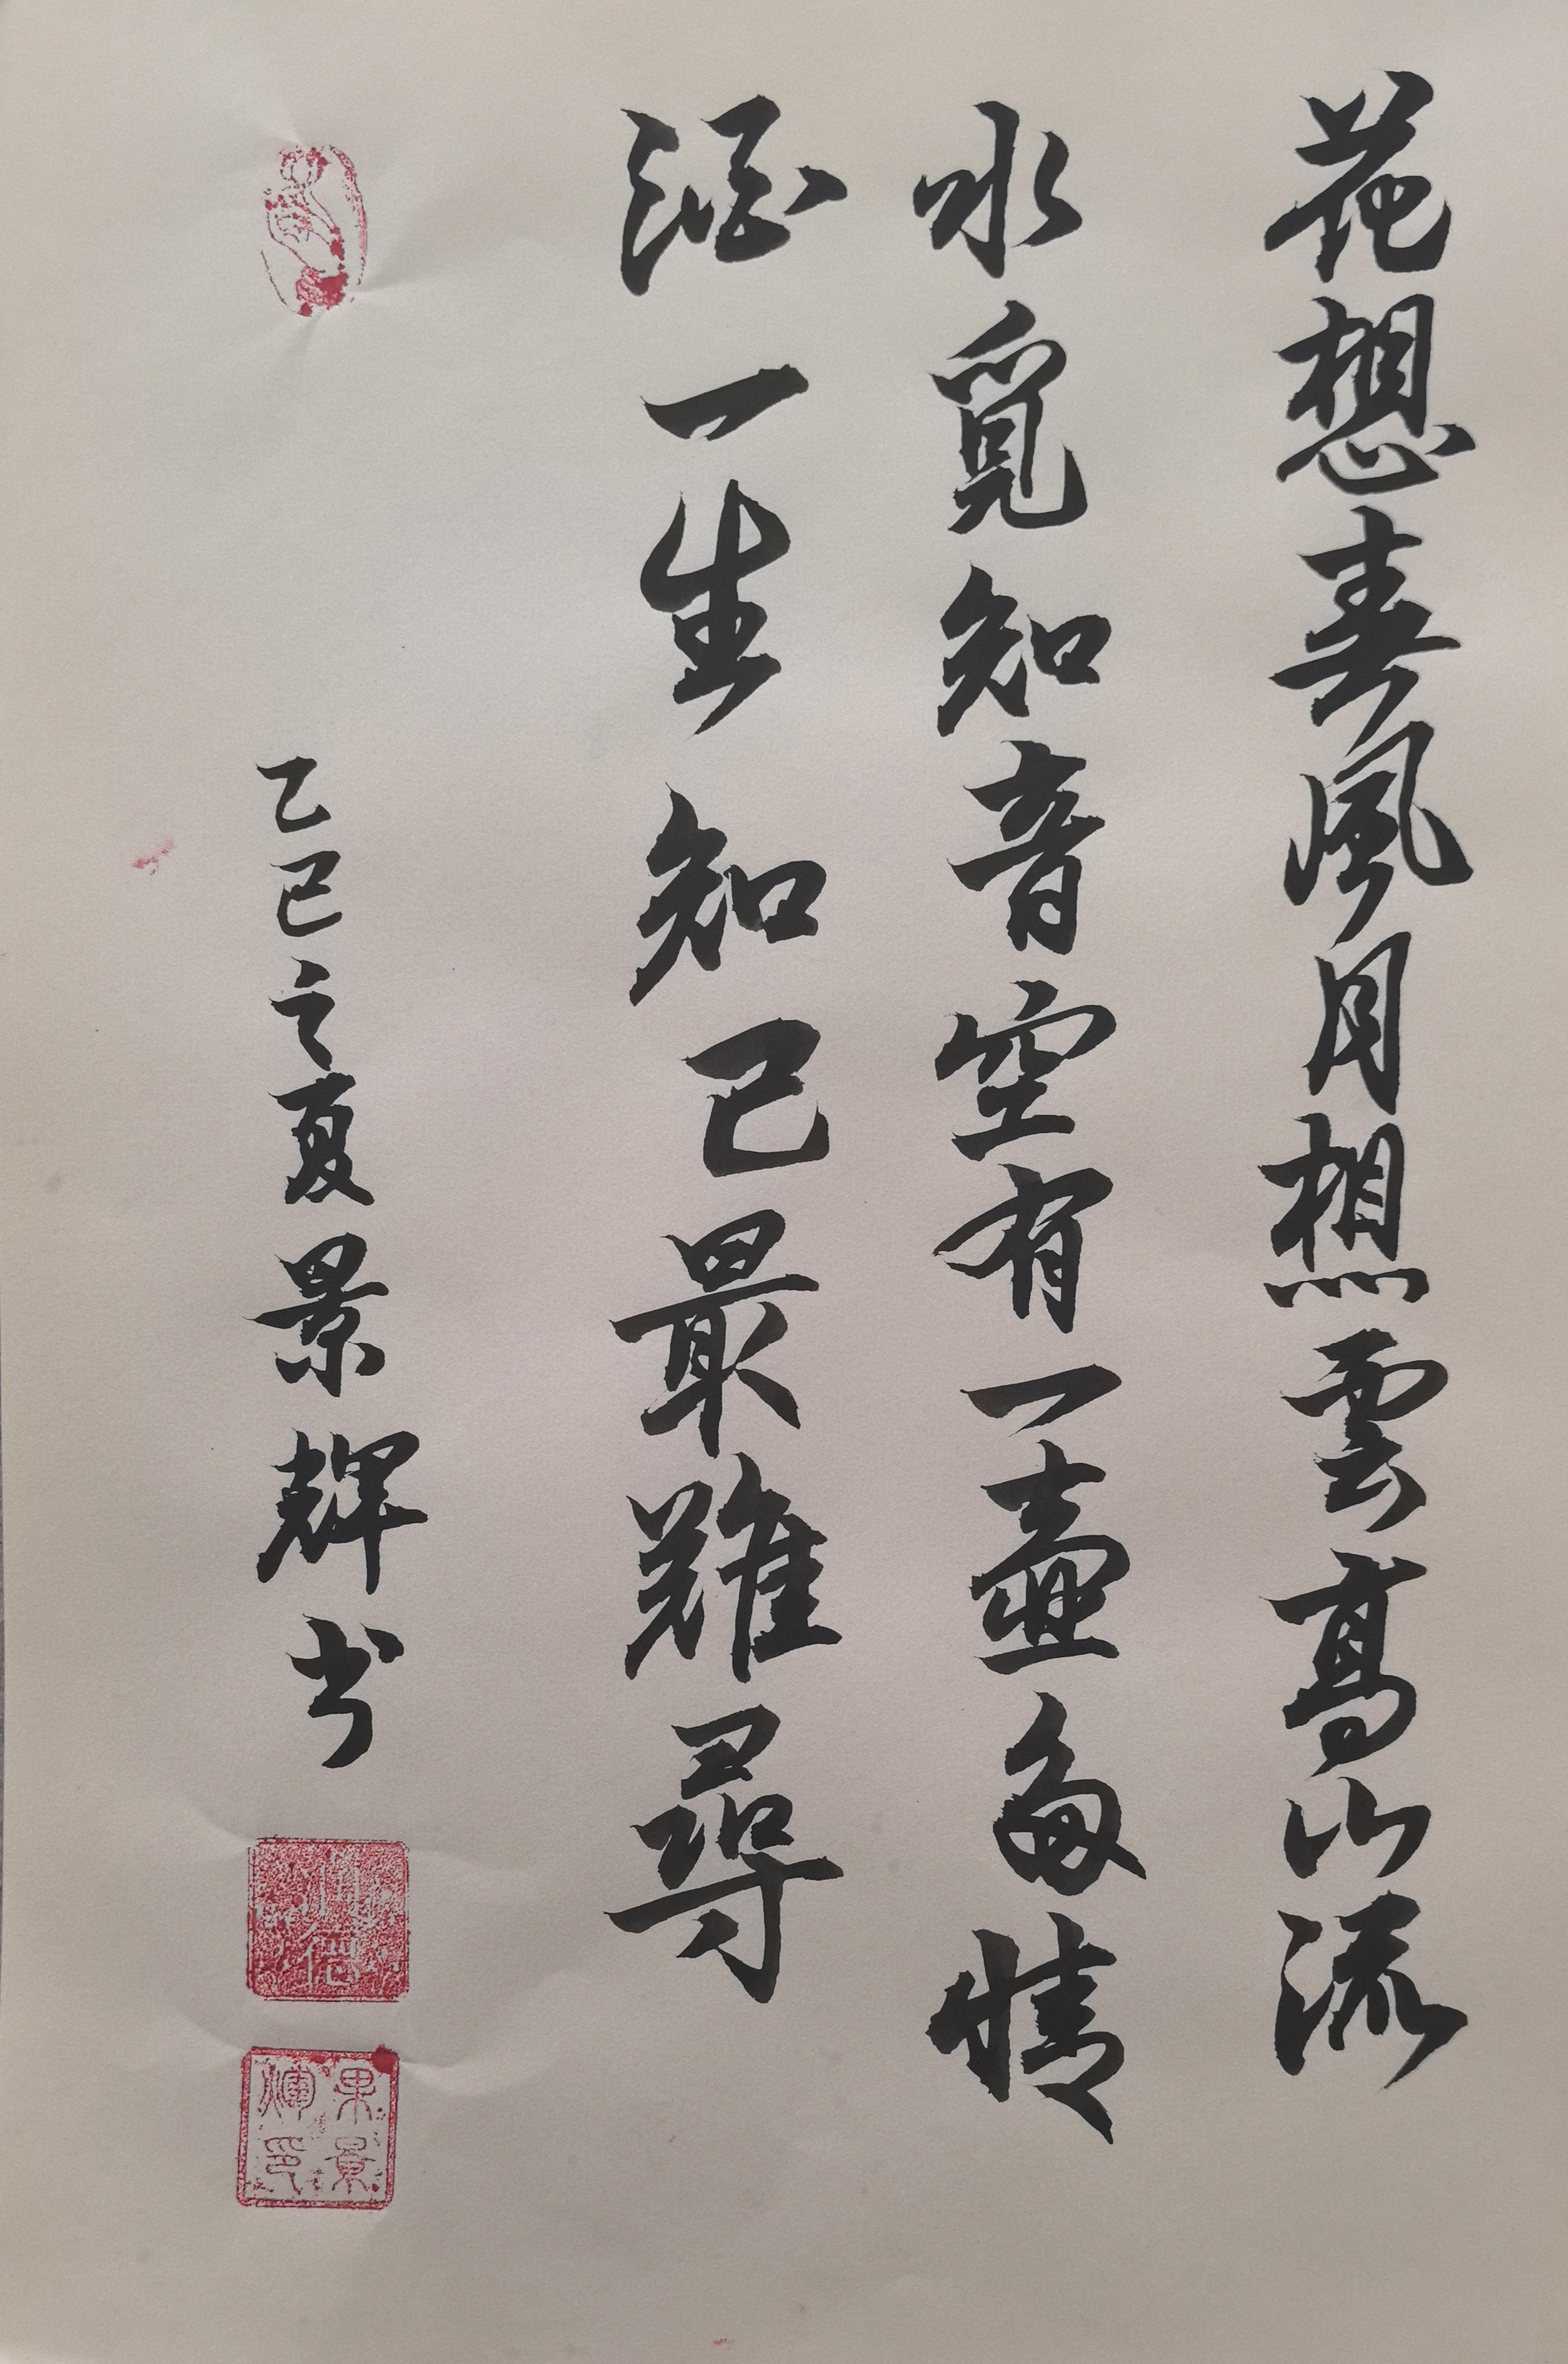 花想春風月想雲高山流
水覓知音空有一壺多情
酒一生知己最難尋
乙巳之夏景輝书
果景輝印